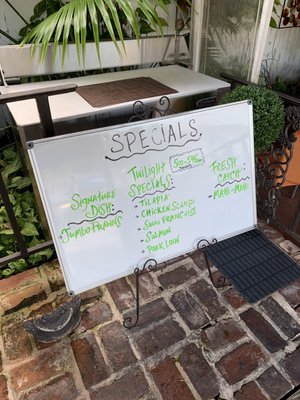 SPECIALS
Signature
DISH
JUMBO PRAWNS
Twilight
SPECIALS
TILAPIA
CHICKEN SCAMPI
SHRIMP FRANCHISE
SALMON
PORK LOIN
FRESH
CATCH
MAHI-MAHI